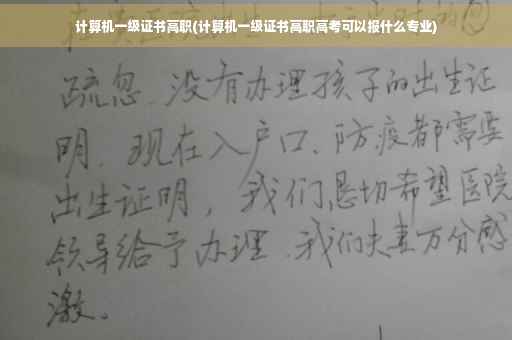 计算机一级证书高职(计算机一级证书高职高考可以报什么专业)
疏忽、没有办理孩子的出生证
明、现在入户口、防疫都需要
出生证明，我们恳切希望医院
领导给予办理、我们夫妻万分感
激。